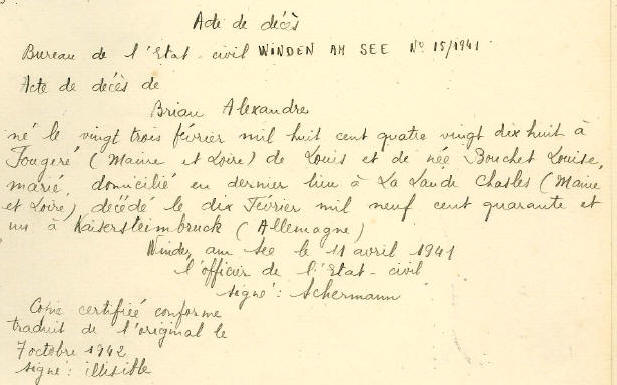 Acte de décès
Bureau de l'Etat-civil WINDEN AM SEE No 15/1941
Acte de décès de
Briau Alexandre
né le vingt trois février mil huit cent quatre vingt dix huit à
Fougeré (Maine et Loire) de Louis et de née Bouchet Louise,
marié, domicilié en dernier lieu à La Lande Chasles (Maine
et Loire), décédé le dix Février mil neuf cent quarante et
un à Kaisersteimbruck (Allemagne)
Winden am See le 11 avril 1941
l'officier de l'Etat-civil
signé: Achermann
Copie certifiée conforme
traduit de l'original le
7 octobre 1942
signé: illisible